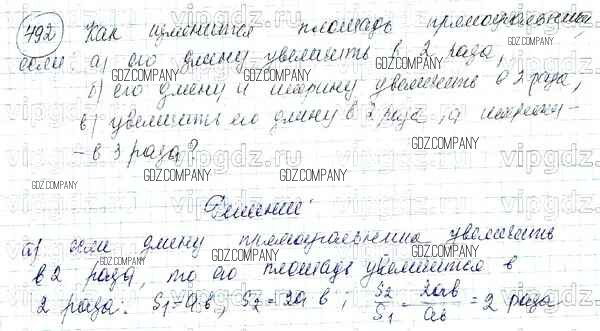 492 Как изменится площадь прямоугольника,
если: а) его длину увеличить в 2 раза,
б) его длину и ширину увеличить в 2 раза,
в) увеличить его длину в 2 раза, а ширину -
- в 3 раза?
Решение:
а) если длину прямоугольника увеличить
в 2 раза, то его площадь увеличится в
2 раза: S₁ = a·b; S₂ = 2a b; S₂/S₁ = 2ab/ab = 2 раза.
GDZ.COMPANY
vipgdz.ru